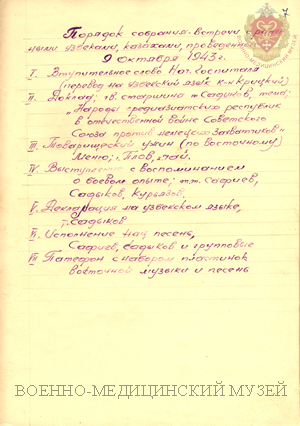 7
Порядок собрания-встречи с
ными узбеками, казахами, проведенной
9 октября 1943 г.
I. Вступительное слово Нач. госпиталя
(перевод на узбекский язык к-н Крицкий)
II. Доклад: гв. старшина т. Садыков, тема:
„Народы среднеазиатских республик
в отечественной войне Советского
Союза против немецких захватчиков"
III. Товарищеский ужин (по восточному)
Меню: Плов, чай.
IV. Выступления с воспоминанием
о боевом опыте: т.т. Сафиев,
Садыков,
V. Декламация на узбекском языке,
т. Садыков
VI. Исполнение нац. песень,
Сафиев, Садыков и групповые
VII Патефон с набором пластинок
восточной музыки и песень
ВОЕННО-МЕДИЦИНСКИЙ МУЗЕЙ